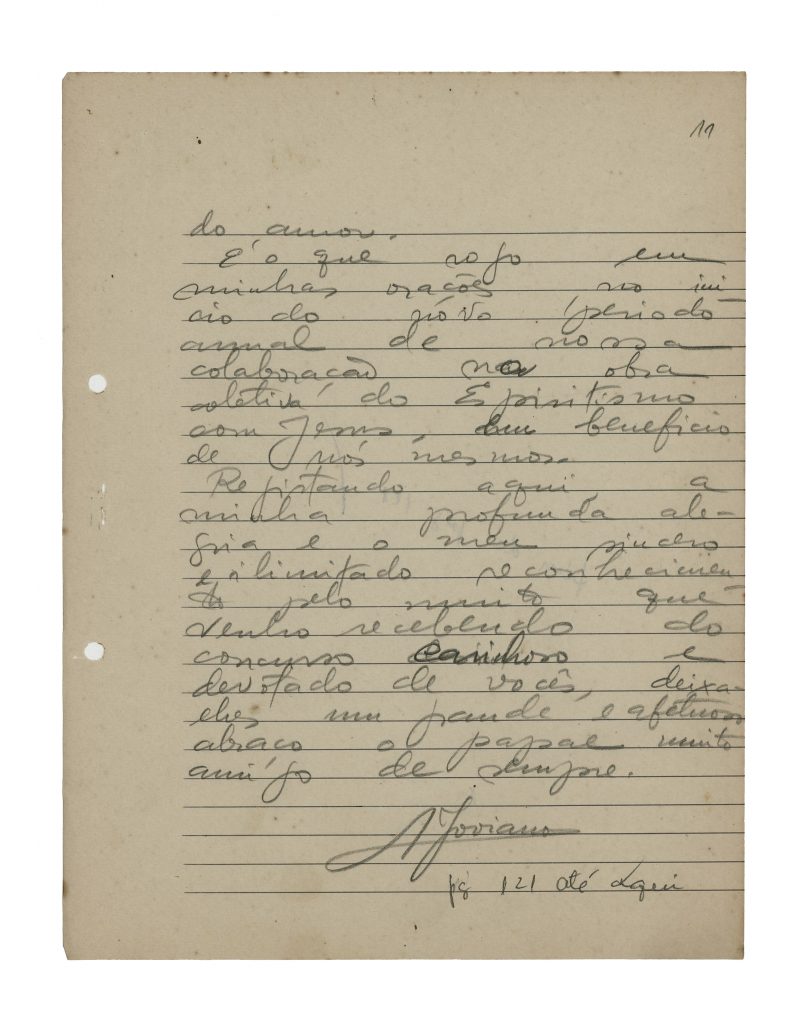 11
do amor.
É o que rogo em
minhas orações no iní
cio do nôvo periodo
annual de nossa
colaboração na obra
coletiva do Espiritismo
com Jesus, em beneficio
de nós mesmos.
Registando aqui a
minha profunda ale-
gria e o meu sincero
e ilimitado reconhecimen
to pelo muito que
venho recebendo do
concurso carinhoso e
devotado de vocês, deixa-
lhes um grande e afetuoso
abraço o papae muito
amigo de sempre.
A Joviano
pg 121 até aqui